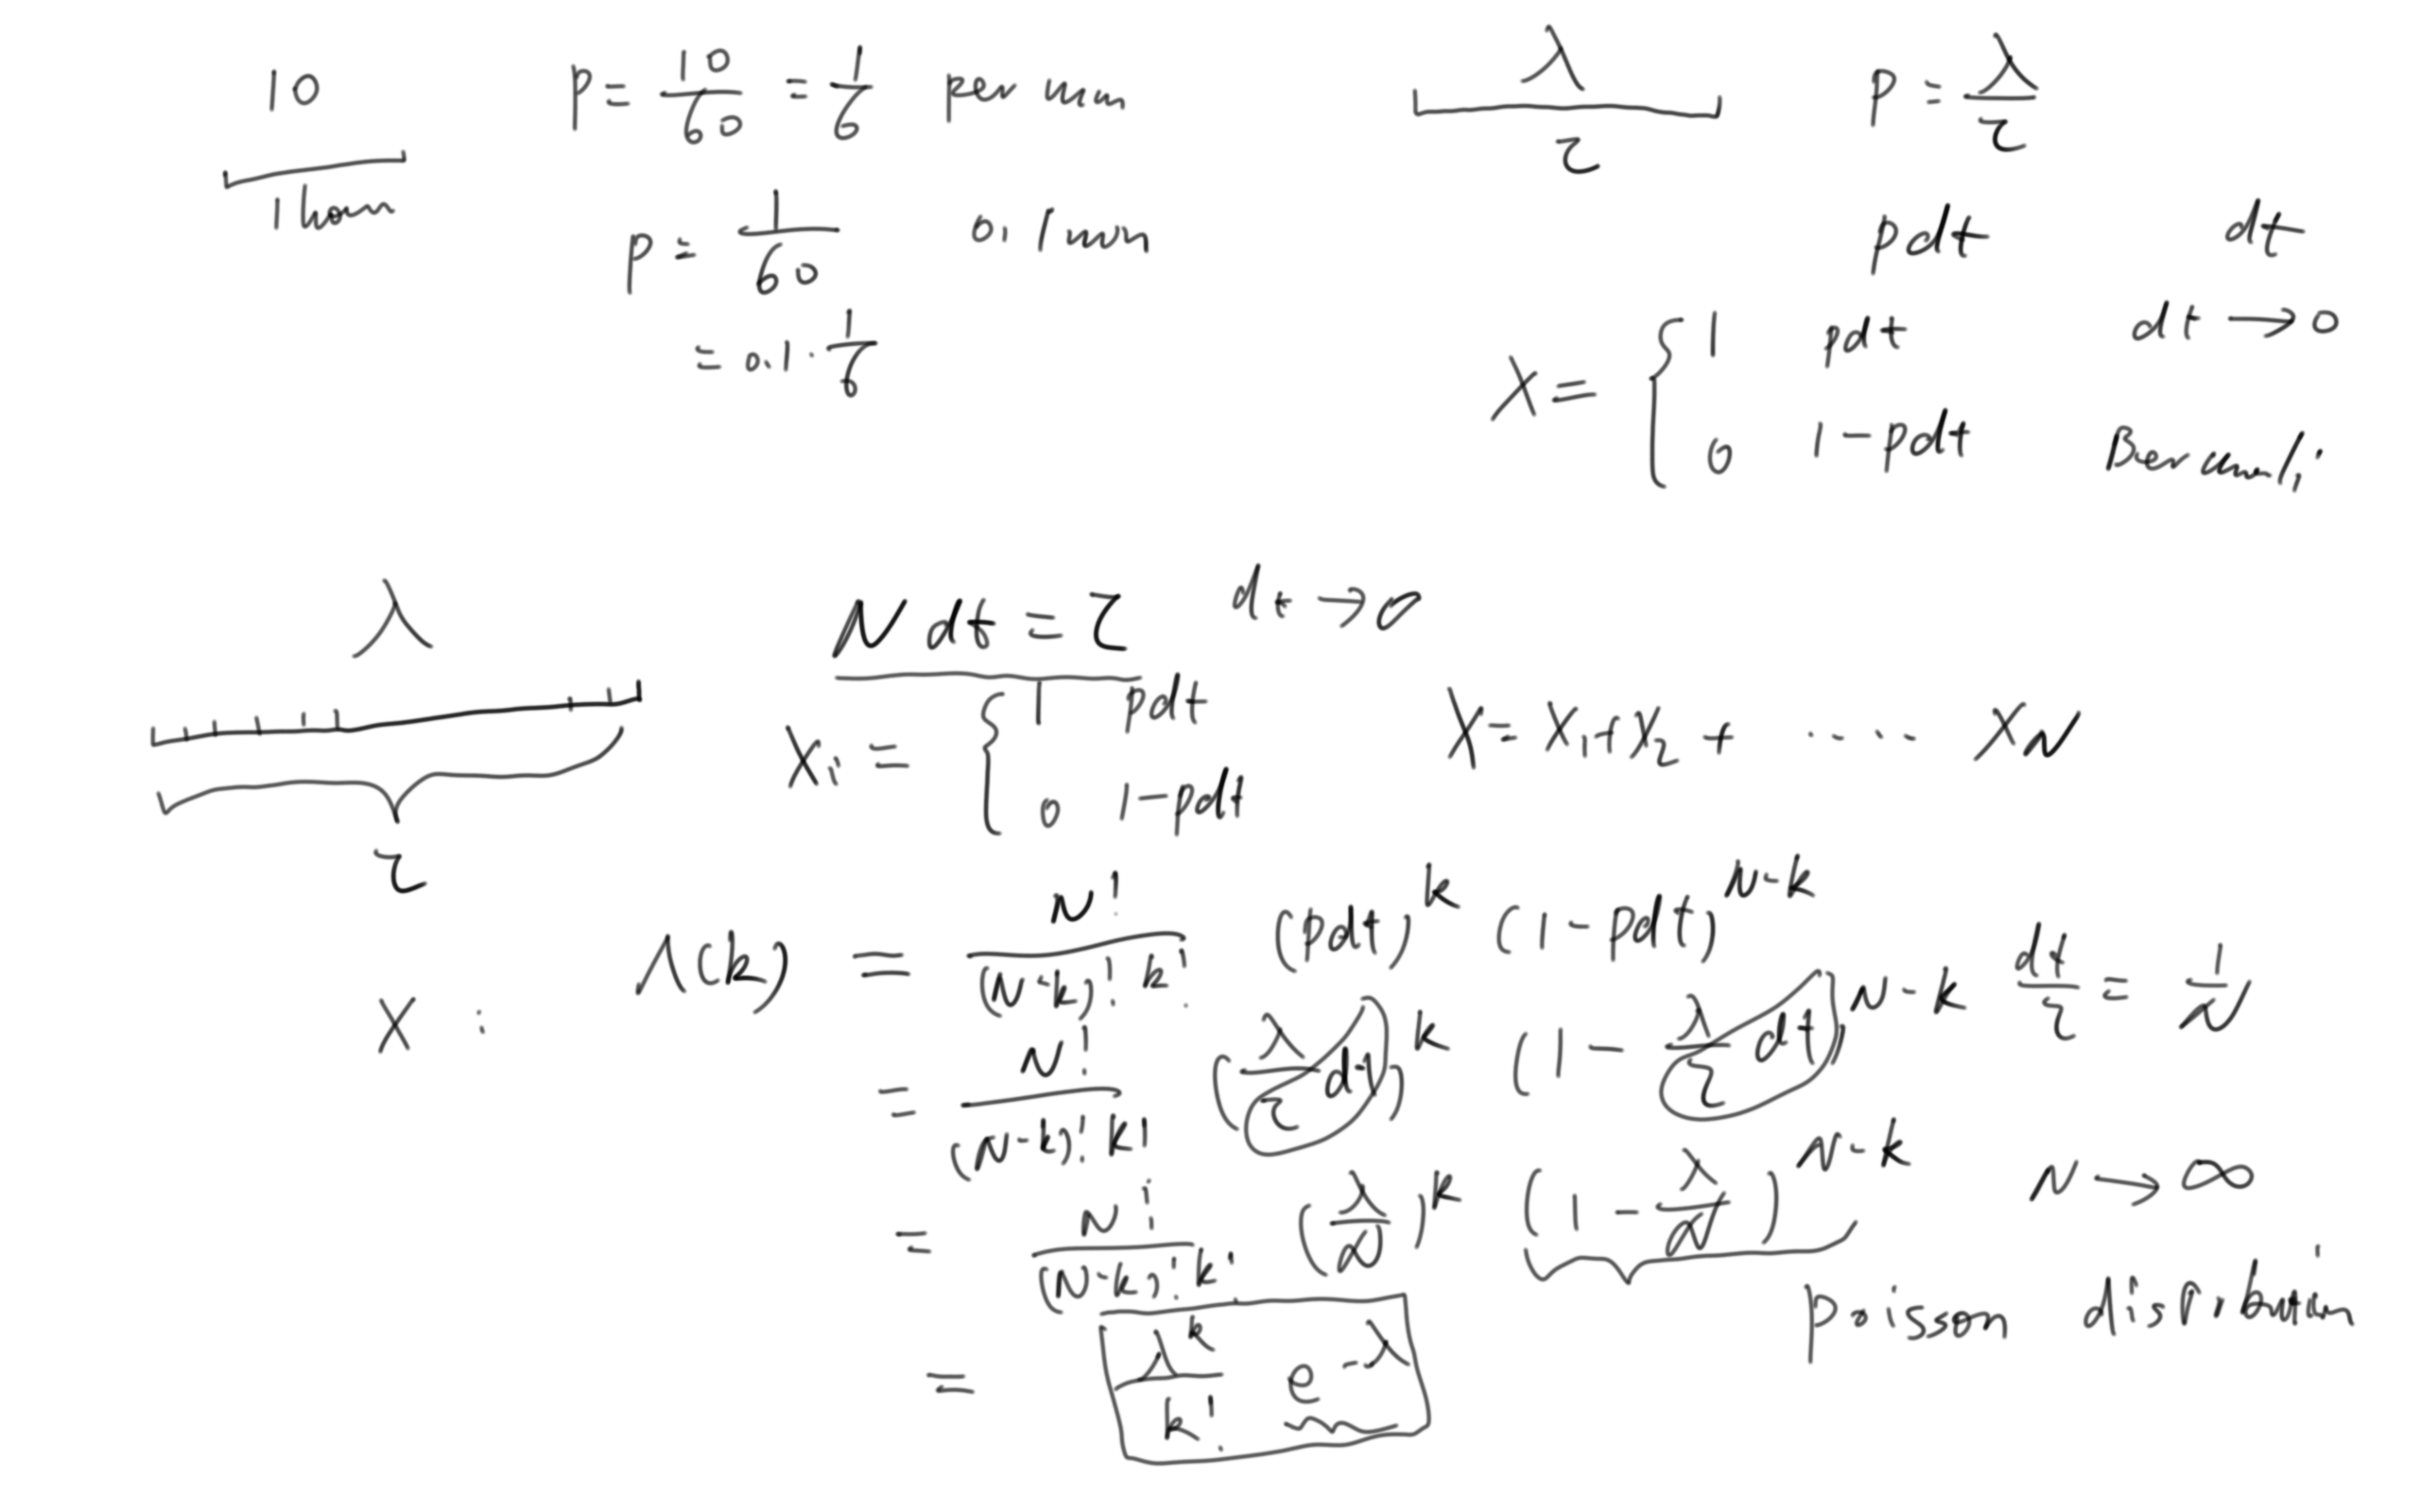 10
1 hour
p = 10/60 = 1/6 per min
p = 1/60 0.1 min
= 0.1 · 1/6
λ
τ
p = λ/τ
pdt dt
X = { 1 pdt dt → 0
0 1 - pdt Bernoulli
λ
τ
N dt = τ dt → 0
Xi = { 1 pdt
0 1 - pdt
X = X1 + X2 + .... XN
X : Λ(k) = N!/((N-k)! k!) (pdt)^k (1 - pdt)^(N-k) dt/τ = 1/N
= N!/((N-k)! k!) (λ/τ dt)^k (1 - λ/τ dt)^(N-k)
= N!/((N-k)! k!) (λ/N)^k (1 - λ/N)^(N-k) N → ∞
= λ^k/k! e^(-λ) Poisson distribution